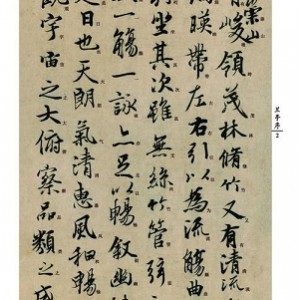 崇山
有峻領茂林脩竹又有清流
湍暎帶左右引以為流觴曲
列坐其次雖無絲竹管弦
一觴一詠亦足以暢叙幽情
是日也天朗氣清惠風和暢
觀宇宙之大俯察品類之盛
兰亭序 2